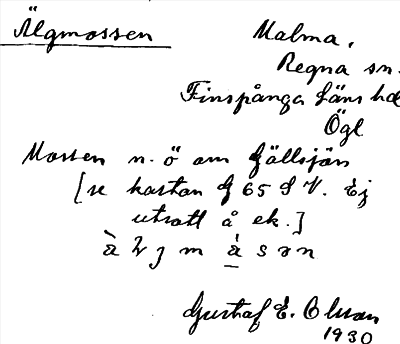 Älgmossen
Malma,
Regna sn.
Finspånga läns hd
Ögl
Mossen n. ö om Gällsjön
[se kartan f 65 S V. Ej
utsatt å ek.]
Gustaf E. Olsson
1930